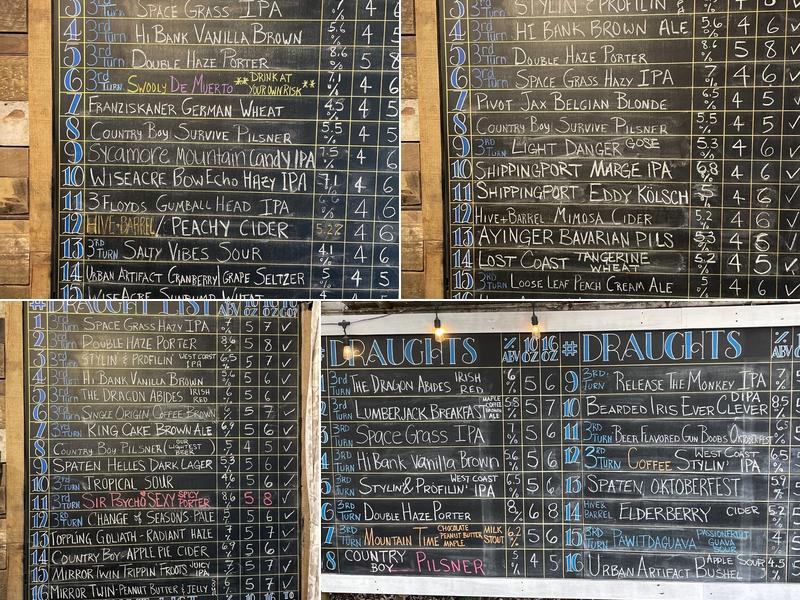 3rd Turn Space Grass IPA 7 4 6
4 3rd Turn Hi Bank Vanilla Brown 4 6
5 3rd Turn Double Haze Porter 5 8
6 3rd Turn Swooly De Muerto **Drink at your own risk** 7.1 % 4 6
7 Franziskaner German Wheat 4 5
8 Country Boy Survive Pilsner 5.5 % 4 5
9 Sycamore Mountain Candy IPA 7.5 % 4 6
10 Wiseacre BowEcho Hazy IPA 7.1 4 6
11 3 Floyds Gumball Head IPA 4 6
12 Hive+Barrel / Peachy Cider 5.2% 4 6
13 3rd Turn Salty Vibes Sour 4.1 % 4 6
14 Urban Artifact Cranberry/Grape Seltzer 5 % 4 5
15 WiseAcre
3rd Turn Stylin & Profilin
4 3rd Turn Hi Bank Brown Ale 5.6 % 4 6 ✓
5 3rd Turn Double Haze Porter 8.6 % 5 8 ✓
6 3rd Turn Space Grass Hazy IPA 7 % 4 6 ✓
7 Pivot Jax Belgian Blonde 6.5 % 4 5 ✓
8 Country Boy Survive Pilsner 5.5 % 4 5 ✓
9 3rd Turn Light Danger Gose 5.3 % 4 6 ✓
10 Shippingport Marge IPA 6.8 % 4 6 ✓
11 Shippingport Eddy Kölsch 5 % 4 6 ✓
12 Hive+Barrel Mimosa Cider 5.2 % 4 6 ✓
13 Ayinger Bavarian Pils 5.3 % 4 6 ✓
14 Lost Coast Tangerine Wheat 5.2 % 4 5 ✓
15 3rd Turn Loose Leaf Peach Cream Ale 5 % 4 6 ✓
# Draught List ABV 10 oz 16 oz To Go
1 3rd Turn Space Grass Hazy IPA 7 % 5 7 ✓
2 3rd Turn Double Haze Porter 8.6 % 5 8 ✓
3 3rd Turn Stylin & Profilin West Coast IPA 6.5 % 5 7 ✓
4 3rd Turn Hi Bank Vanilla Brown 5 6 ✓
5 3rd Turn The Dragon Abides Irish Red 5 6 ✓
6 3rd Turn Single Origin Coffee Brown 5 7 ✓
7 3rd Turn King Cake Brown Ale 6.9 % 5 6 ✓
8 Country Boy Pilsner (Our Lightest Beer) 5 % 4 5 ✓
9 Spaten Helles Dark Lager 5 6 ✓
10 3rd Turn Tropical Sour 5 6 ✓
11 3rd Turn Sir Psycho Sexy Spicy Porter 8.6 % 5 8 ✓
12 3rd Turn Change of Seasons Pale 5 6 ✓
13 Toppling Goliath - Radiant Haze 5 7 ✓
14 Country Boy - Apple Pie Cider 6.9 % 5 6 ✓
15 Mirror Twin Trippin Froots Juicy IPA 5 7 ✓
16 Mirror Twin - Peanut Butter & Jelly 5 7 ✓
# Draughts % ABV 10 oz 16 oz
1 3rd Turn The Dragon Abides Irish Red 6 % 5 6
2 3rd Turn Lumberjack Breakfast Maple Coffee Brown Ale 5.8 % 5 7
3 3rd Turn Space Grass IPA 7 % 5 6
4 3rd Turn Hi Bank Vanilla Brown 5.6 % 5 6
5 3rd Turn Stylin' & Profilin' West Coast IPA 6.5 % 5 6
6 3rd Turn Double Haze Porter 8 % 6 8
7 3rd Turn Mountain Time Chocolate Peanut Butter Maple Milk Stout 6.2 % 5 6
8 Country Boy Pilsner 5 % 4 5
# Draughts % ABV
9 3rd. Turn Release The Monkey IPA 7 % 5
10 Bearded Iris Ever Clever DIPA 8.5 %
11 3rd Turn Beer Flavored Gun Boobs Oktoberfest 6.5 %
12 3rd Turn Coffee Stylin' West Coast IPA 6.5 %
13 Spaten Oktoberfest 5.9 %
14 Hive & Barrel Elderberry Cider 5.2 %
15 3rd Turn Pawitdaguava Passionfruit Guava Sour 4 %
16 Urban Artifact Bushel Apple Sour 4.5 %